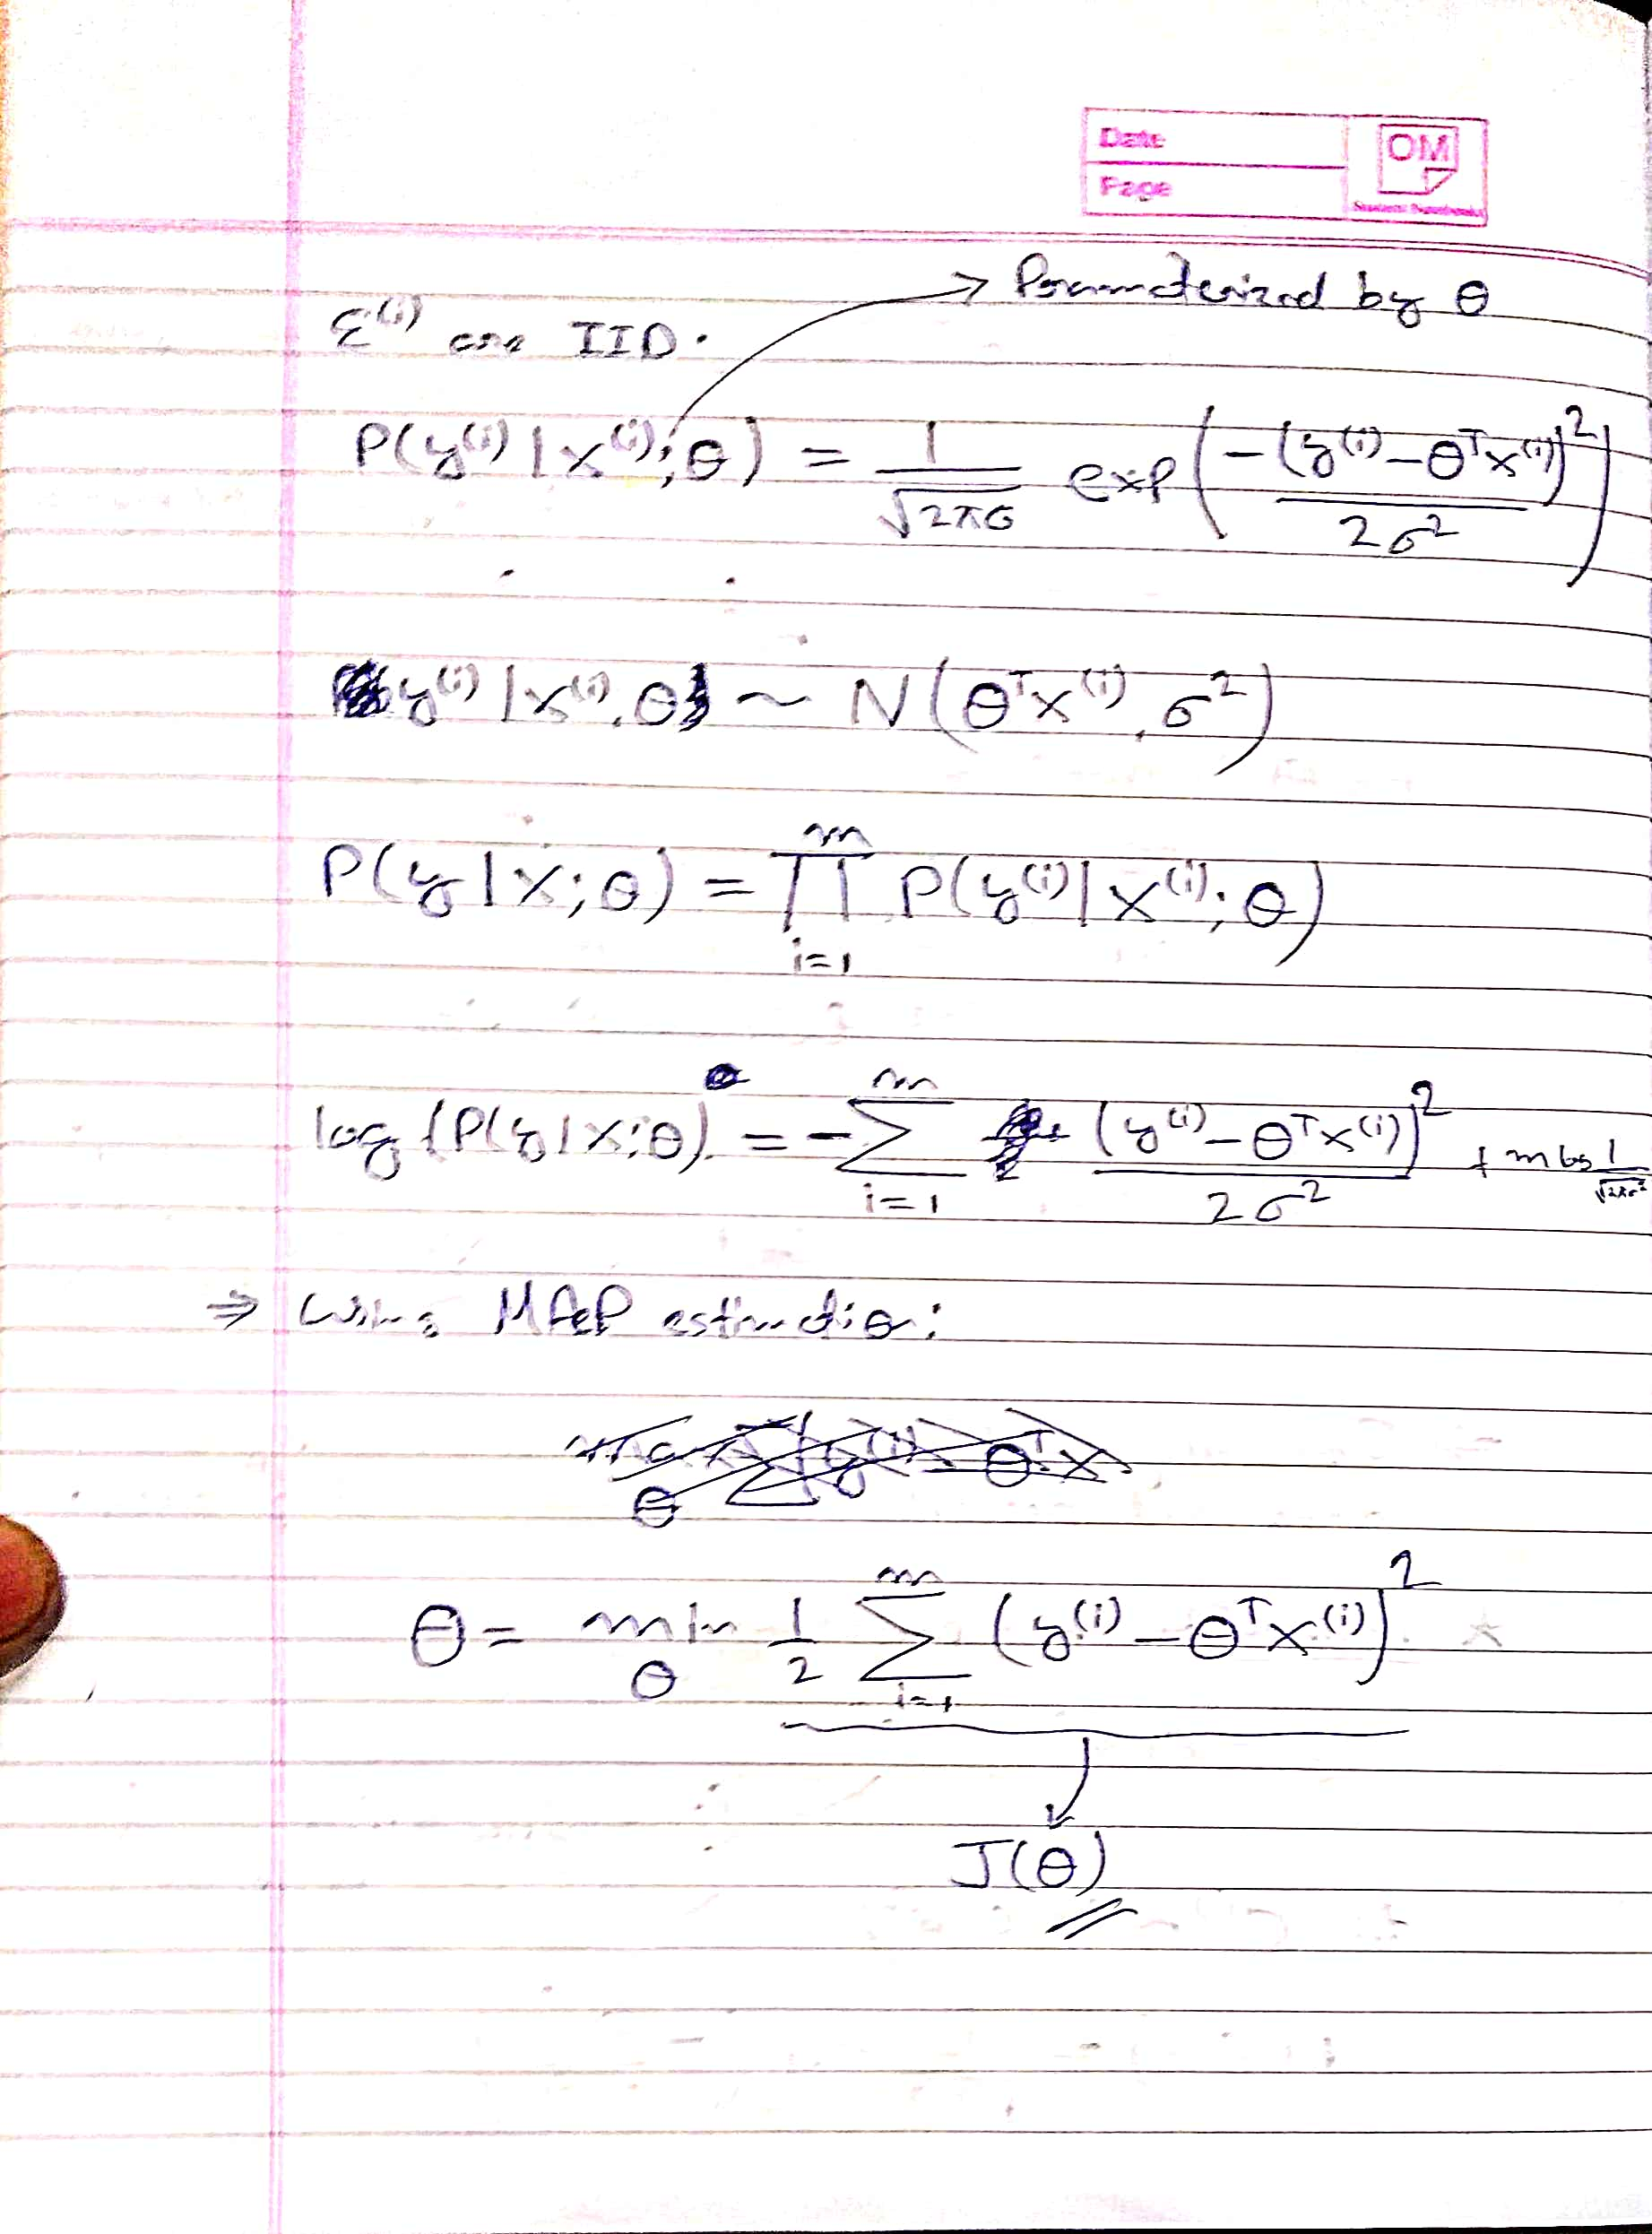 Date
Page
OM
Student Notebooks
→ Parameterized by θ
ε⁽ⁱ⁾ are IID.
P(y⁽ⁱ⁾ | x⁽ⁱ⁾; θ) = 1/√2πσ exp(-(y⁽ⁱ⁾ - θᵀx⁽ⁱ⁾)²/2σ²)
y⁽ⁱ⁾ | x⁽ⁱ⁾, θ ~ N(θᵀx⁽ⁱ⁾, σ²)
P(y | X; θ) = ∏ᵢ₌₁ᵐ P(y⁽ⁱ⁾ | x⁽ⁱ⁾; θ)
log {P(y | X; θ) = - Σᵢ₌₁ᵐ (y⁽ⁱ⁾ - θᵀx⁽ⁱ⁾)²/2σ² + m log 1/√2πσ²
⇒ Using estimation:
θ = min_θ 1/2 Σᵢ₌₁ᵐ (y⁽ⁱ⁾ - θᵀx⁽ⁱ⁾)²
J(θ)